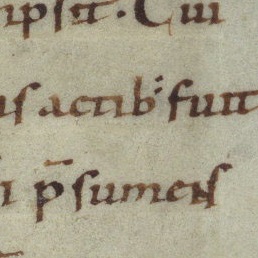 ipsit. Cui
us actib; fuit
i p̄sumens